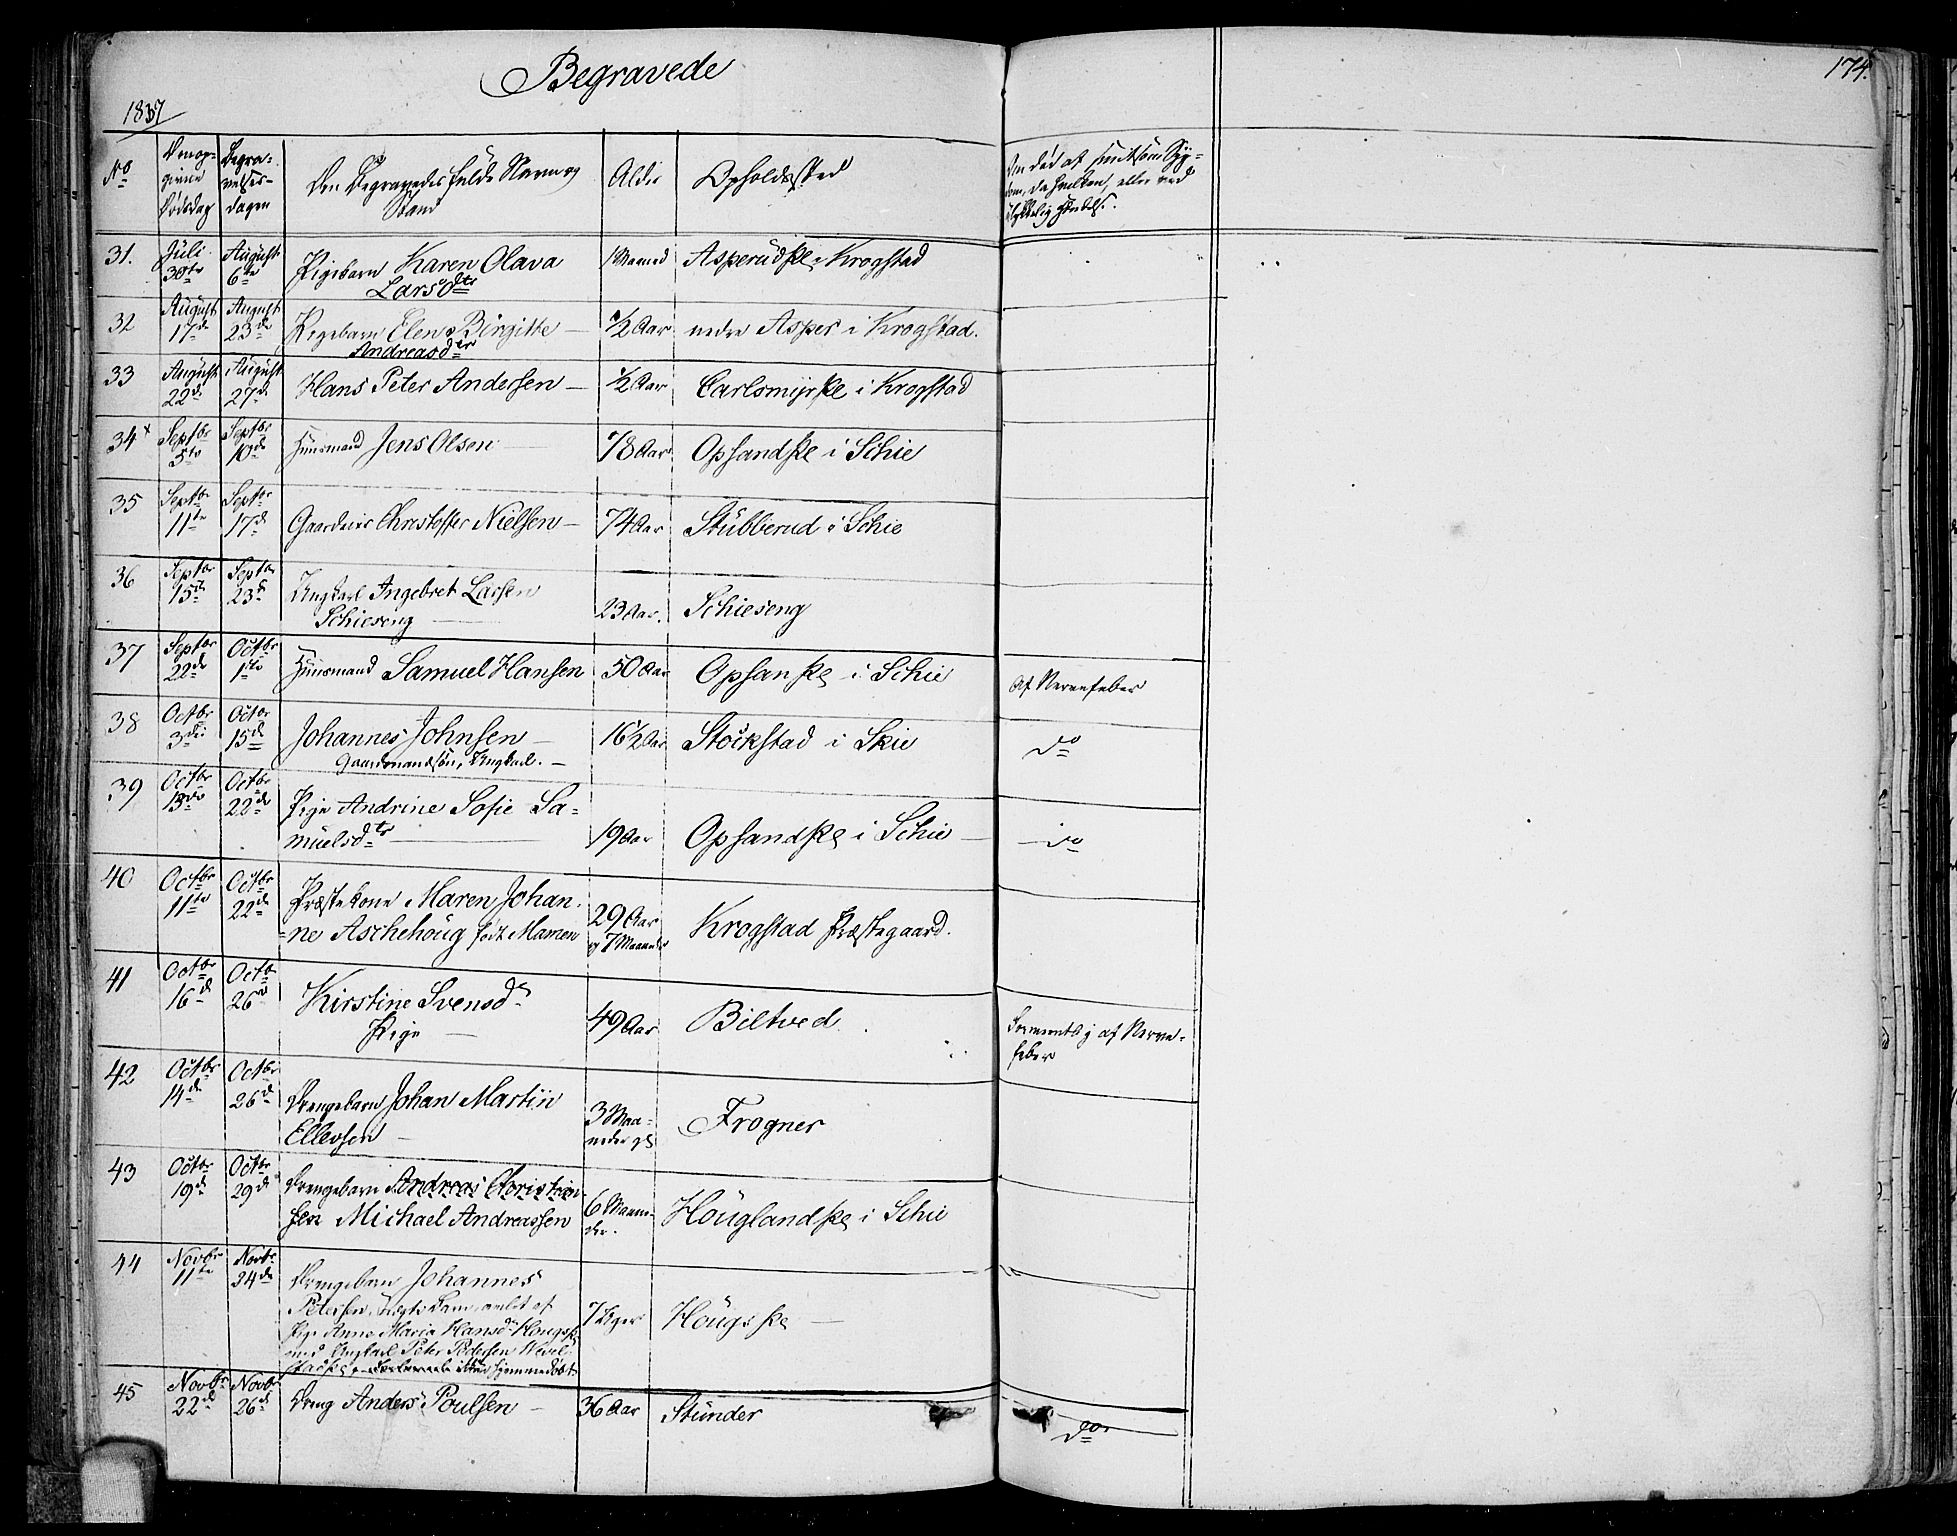 Begravede
174.
1837
No
Den op-
givne
Dødsdag
Begra-
velses-
dagen
Den Begravedes fulde Navn og
Stand
Alder
Opholdssted
Om død af smitsom Syg-
dom, da hvilken, eller ved
ulykkelig Hændels.
31. Juli 30te August 6te Pigebarn Karen Olava Larsdtr 1 Maaned Asperudske i Krogstad
32 August 17de August 23de Pigebarn Elen Birgitte Andreasdtr — ½ Aar nedre Asper i Krogstad.
33 August 22de August 27de Hans Peter Andersen — ½ Aar Carlsmyrske i Krogstad
34 x Septbr 5te Septbr 10de Huusmand Jens Olsen 78 Aar Opsandske i Schie
35 Septbr 11te Septbr 17de Gaardeier Christoffer Nielsen — 74 Aar Stubberud i Schie
36 Septbr 15de Septbr 23de Ungkarl Ingebret Larsen Schieseng — 23 Aar. Schieseng
37 Septbr 22de Octbr 1ste Huusmand Samuel Hansen 50 Aar Opsanske i Schie af Nervefeber
38 Octbr 3die Octbr 15de Johannes Johnsen — Gaardmandssøn, Ungkarl. — 16½ Aar Stockstad i Skie do
39 Octbr 13de Octbr 22de Pige Andrine Sofie Sa-
muelsdtr — 19 Aar Opsandske i Schie — do
40 Octbr 11te Octbr 22de Præstekone Maren Johan-
ne Aschehoug født Mamen 29 Aar og 7 Maaneder Krogstad Præstegaard.
41 Octbr 16de Octbr 26de Kirstine Svensdr Pige — 49 Aar Biltved Formentlig af Nerve-
feber
42 Octbr 14de Octbr 26de Drengebarn Johan Martin
Ellevsen — 3 Maa-
neder gl Frogner
43 Octbr 19de Octbr 29de Drengebarn Andreas Christian
Michael Andreassen 6 Maane-
der. Houglandske i Schie
44 Novbr 11te Novbr 24de Drengebarn Johannes
Petersen, Uægte Barn, avlet af
Pige Anne Maria Hansdr Hougsk
med Ungkarl Peter Pedersen
hjemmedøbt 7 Uger Hougske —
45 Novbr 22de Novbr 26de Dreng Anders Poulsen — 36 Aar Stunder do